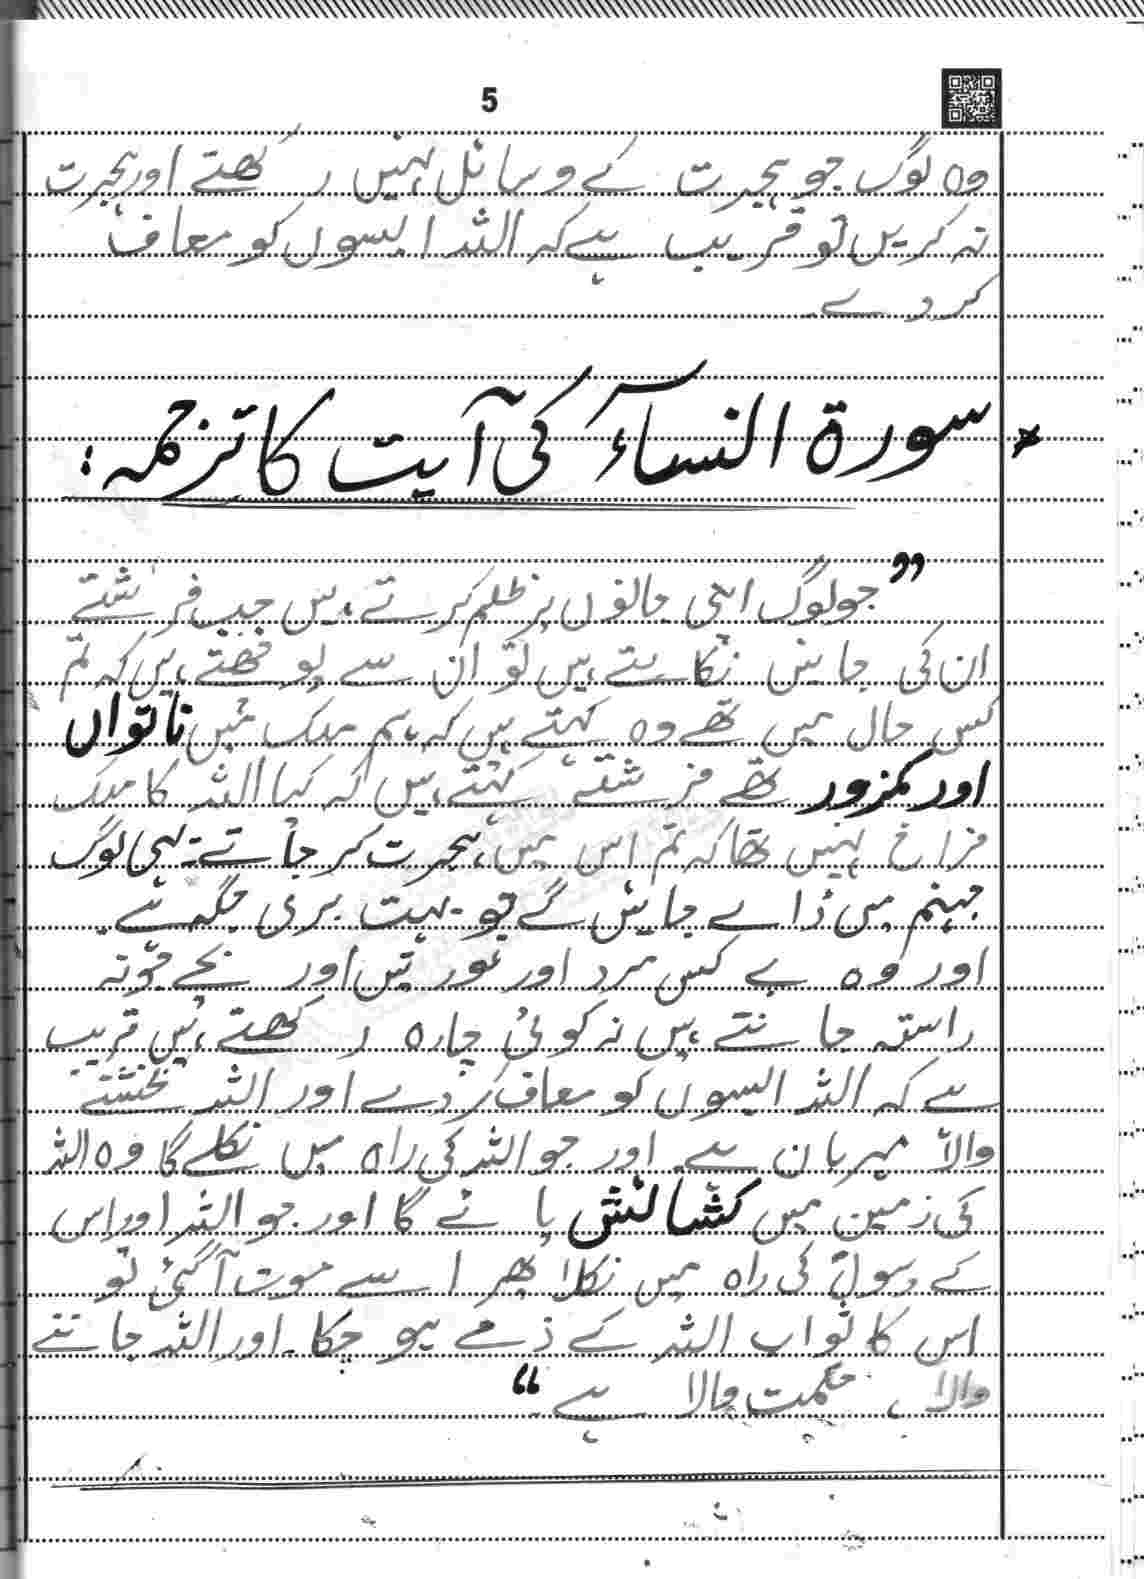 5
وہ لوگ جو ہجرت کے وسائل نہیں رکھتے اور ہجرت
نہ کریں تو قریب ہے کہ اللہ ایسوں کو معاف
کر دے۔
* سورۃ النسآء کی آیت کا ترجمہ:
”جو لوگ اپنی جانوں پر ظلم کرتے ہیں جب فرشتے
ان کی جانیں نکالتے ہیں تو ان سے پوچھتے ہیں کہ تم
کس حال میں تھے وہ کہتے ہیں کہ ہم ملک میں ناتواں
اور کمزور تھے فرشتے کہتے ہیں کہ کیا اللہ کا ملک
فراخ نہیں تھا کہ تم اس میں ہجرت کر جاتے۔ یہی لوگ
جہنم میں ڈالے جائیں گے تو بہت بری جگہ ہے۔
اور وہ بے کس مرد اور عورتیں اور بچے جو نہ
راستہ جانتے ہیں نہ کوئی چارہ رکھتے ہیں قریب
ہے کہ اللہ ایسوں کو معاف کر دے اور اللہ بخشنے
والا مہربان ہے۔ اور جو اللہ کی راہ میں نکلے گا وہ اللہ
کی زمین میں کشائش پائے گا اور جو اللہ اور اس
کے رسولؐ کی راہ میں نکلا پھر اسے موت آ گئی تو
اس کا ثواب اللہ کے ذمے ہو چکا۔ اور اللہ جاننے
والا، حکمت والا ہے۔“